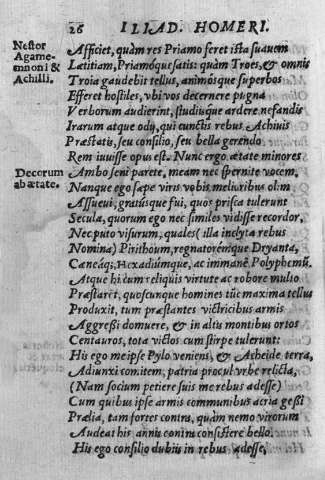 26 ILIAD. HOMERI.
Nestor
Agame-
mnoni &
Achilli.
Afficiet, quàm res Priamo feret ista suauem
Lætitiam, Priamóque satis: quàm Troes, & omnis
Troia gaudebit tellus, animósque superbos
Efferet hostiles, vbi vos decernere pugna
Verborum audierint, studiisque ardere nefandis
Irarum atque odij, qui cunctis rebus Achiuis
Præstatis, seu consilio, seu bella gerendo
Rem iuuisse opus est. Nunc ergo ætate minores
Decorum
ab ætate.
Ambo seni parete, meam nec spernite vocem.
Nanque ego sæpe viris vobis melioribus olim
Assueui, gratúsque fui, quos prisca tulerunt
Secula, quorum ego nec similes vidisse recordor,
Nec puto visurum, quales (illa inclyta rebus
Nomina) Pirithoum, regnatorémque Dryanta,
Cæneáq;, Hexadiúmque, ac immanẽ Polyphemũ.
Atque hi cùm reliquis virtute ac robore multo
Præstarẽt, quoscunque homines tũc maxima tellus
Produxit, tum præstantes victricibus armis
Aggreßi domuere, & in altis montibus ortos
Centauros, tota victos cum stirpe tulerunt:
His ego meipse Pylo veniens, & Acheide terra,
Adiunxi comitem, patria procul vrbe relicta,
(Nam socium petiere suis me rebus adesse)
Cum quibus ipse armis communibus acria geßi
Prælia, tam fortes contrà, quàm nemo virorum
Audeat his annis contrà consistere bello.
His ego consilio dubiis in rebus adesse,